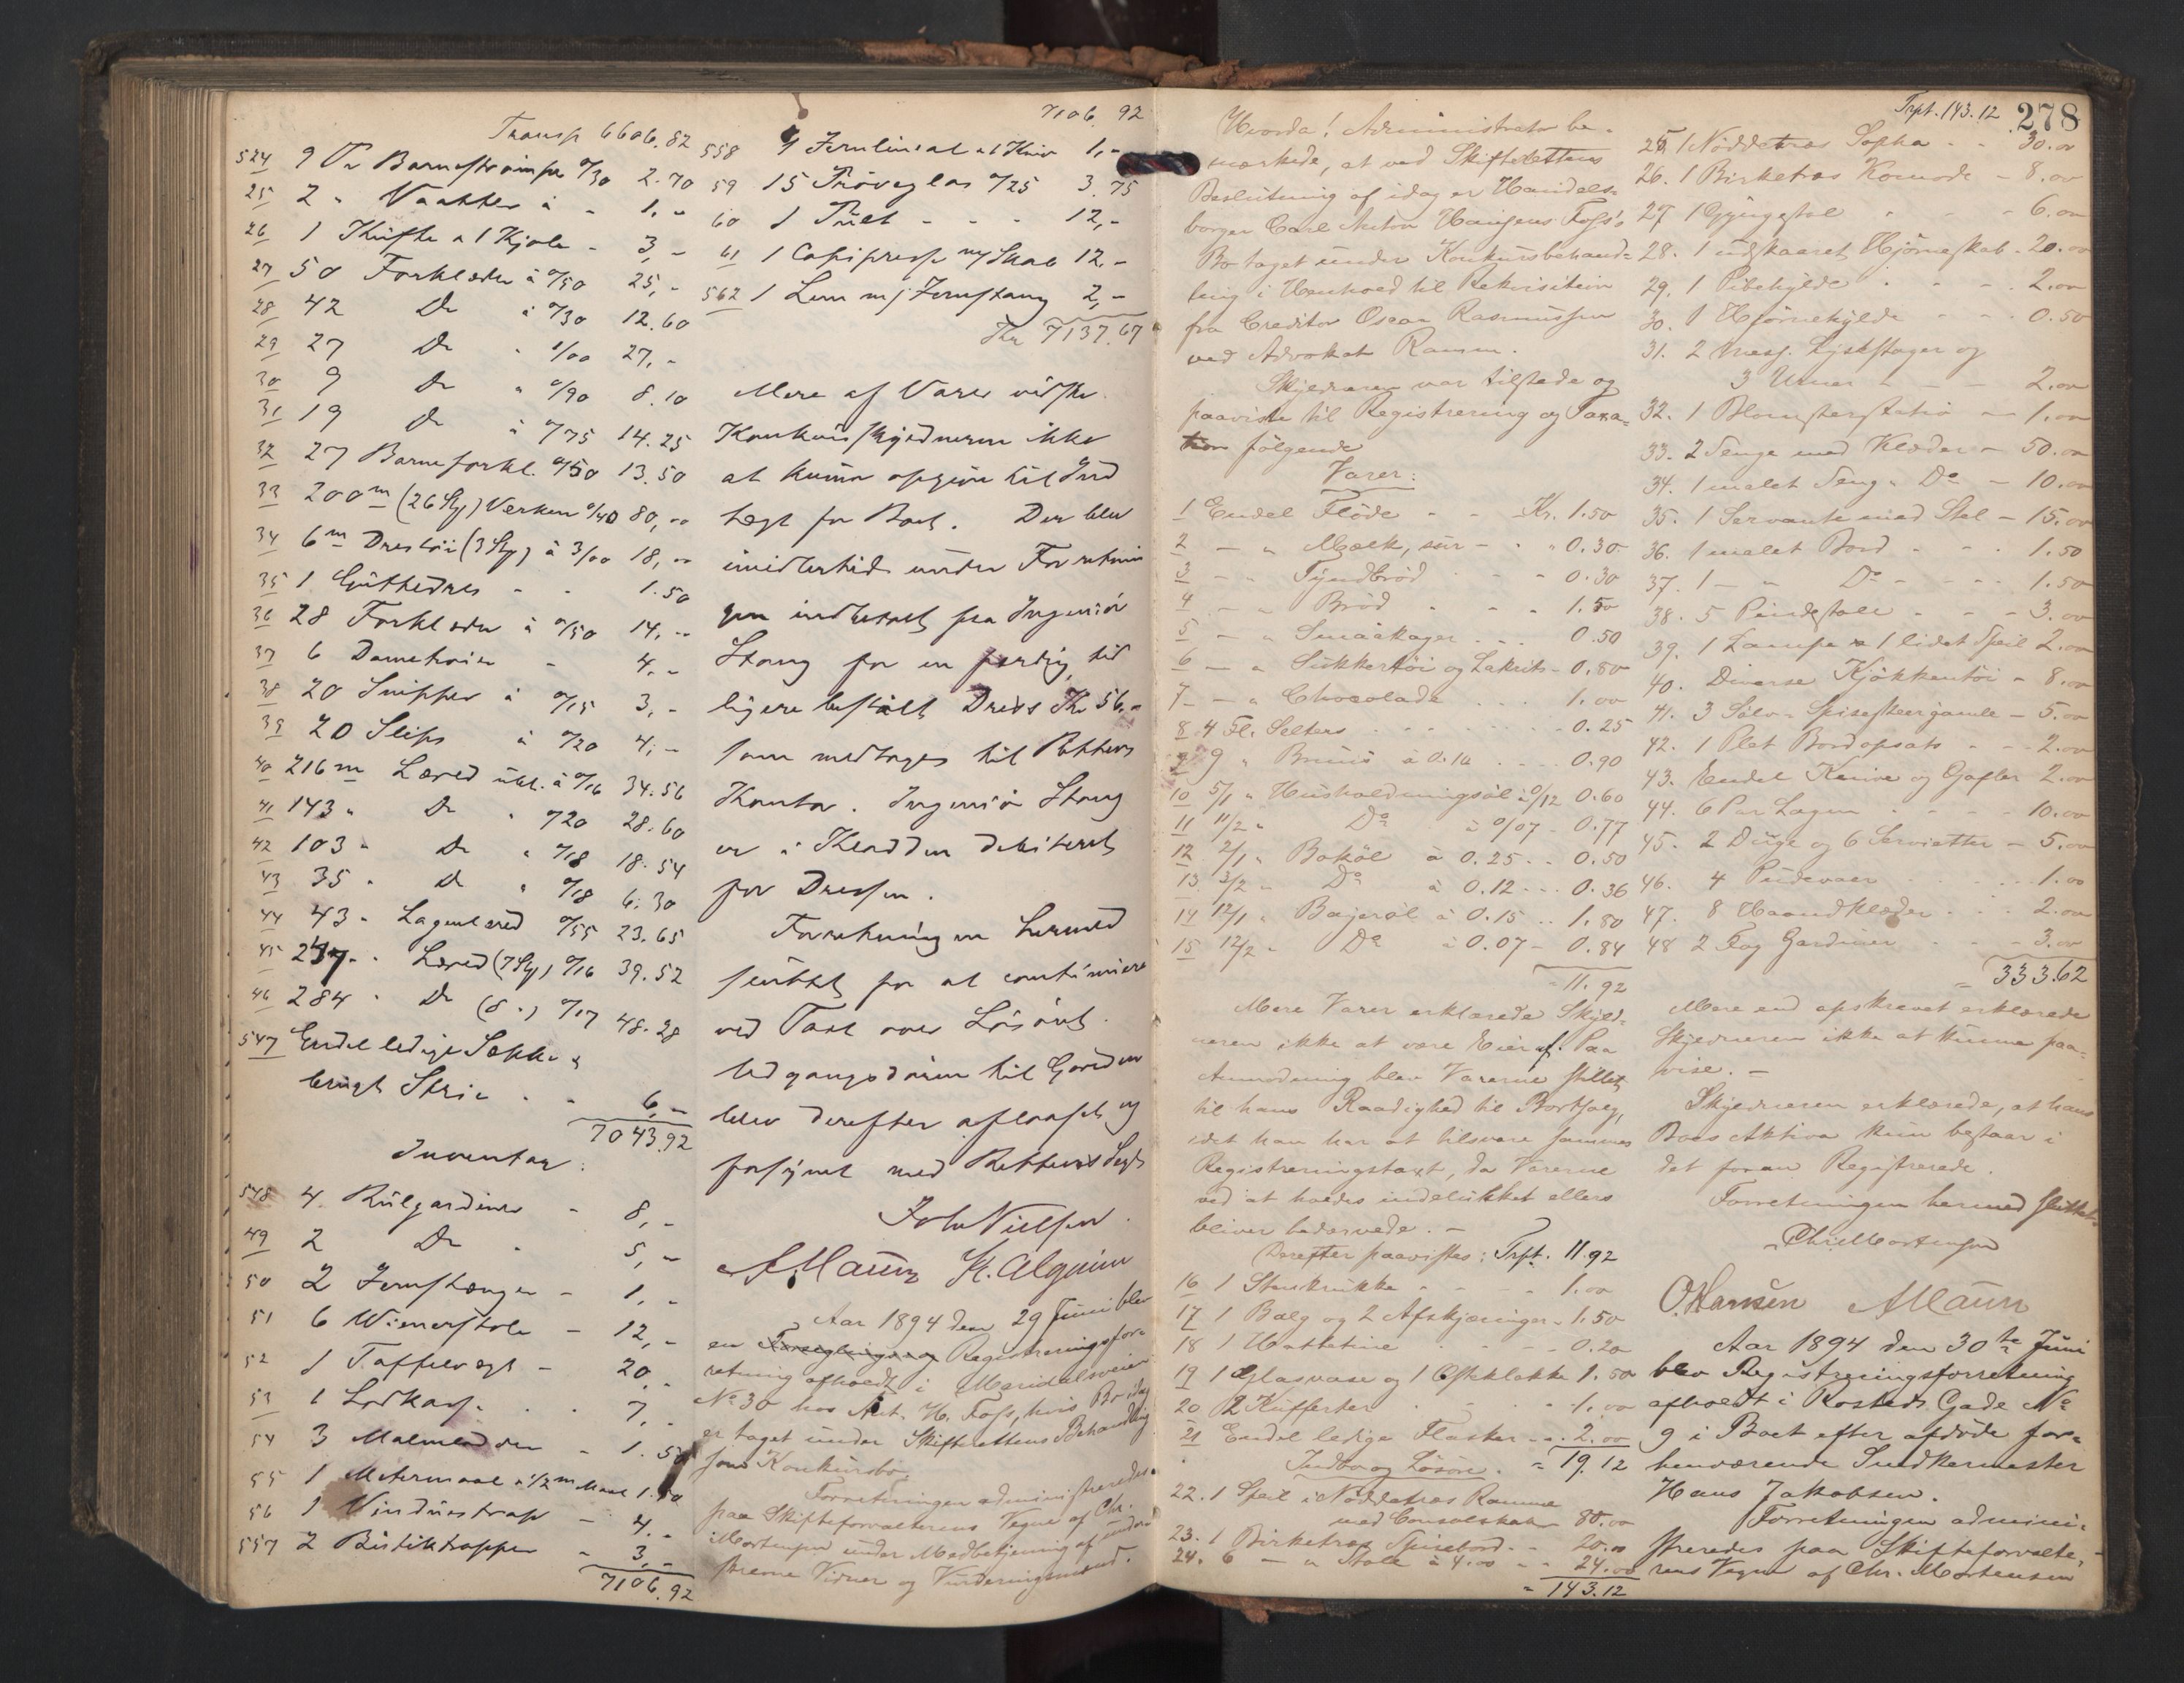 Transp 6606.82
524 9 Pr Barnestrømper 0/30 2.70
25 2 " Vaatter à - 1.-
26 1 Kufte & 1 Kjole - 3,-
27 50 Forklæder à 0/50 25,-
28 42 Do à 0/30 12.60
29 27 Do " 1/00 27,-
30 9 Do " 0/90 8.10
31 19 Do à 0/75 14.25
32 27 Barneforkl. 0/50 13.50
33 200 m (26 Sty) Verken 0/40 80,-
34 6 m Drestøi (3 Sty) à 3/00 18,-
35 1 - - 1.50
36 28 Forklæder à 0/50 14,-
37 6 - 4,-
38 20 Snipper à 0/15 3,-
39 20 Slips à 0/20 4,-
40 216 m Lærred ubl. à 0/16 34.56
41 143 " Do " 0/20 28.60
42 103 " Do " 0/18 18.54
43 35 " Do " 0/18 6.30
44 43 " Lagenlærred 0/55 23.65
45 247 " Lærred (7 Sty) 0/16 39.52
46 284 " Do (8 ") 0/17 48.28
547 Endel ledige Sække &
brugt Strie - - 6,-
7043.92
Inventar:
548 4 Rulgardiner - 8,-
49 2 Do - 5,-
50 2 Jernstænger - 1,-
51 6 Wienerstole - 12,-
52 1 Taffelvægt - 20,-
53 1 - 7,-
54 3 - 1.50
55 1 Metermaal & 1/2 m Maal 1.50
56 1 Vinduestrap - 4,-
557 2 Butiktrapper - 3,-
7106.92
7106.92
558 1 Jernlinial & 1 Kniv 1,-
59 15 Prøveglas 0/25 3.75
60 1 Pult - - - 12,-
61 1 Copipresse m/ Skab 12,-
562 1 Lem m/ Jernstang 2,-
Kr 7137.67
Mere af Varer vidste
Konkursskyldneren ikke
at kunne opgive til Ind
tægt for Boet. Der blev
imidlertid under Forretnin
gen indbetalt fra Ingeniør
Stang for en færdig, tid
ligere bestilt Dress Kr 56,-
som medtages til Rettens
Kontor. Ingeniør Stang
er i Kladden debiteret
for Dressen.
Forretningen hermed
sluttet for at continuere
ved Taxt over Løsøret.
Udgangsdøren til Gaarden
blev derefter aflaaset og
forsynet med Rettens Segl
Joh Nielsen
A Maurz K. Algruim
Aar 1894 den 29 Juni blev
en Forseglings og Registreringsfor=
retning afholdt i Maridalsveien
No 30 hos Ant. H. Foss, hvis Bo idag
er taget under Skifterettens Behandling
som Konkursbo.
Forretningen administreredes
paa Skifteforvalterens Vegne af Chr.
Mortensen under Medbetjening af under=
skrevne Vidner og Vurderingsmænd.
278
Hvorda! Administrator be=
mærkede, at ved Skifterettens
Beslutning af idag er Handels=
borger Carl Anton Hansens Foss's
Bo taget under Konkursbehand=
ling i Henhold til Rekvisition
fra Creditor Oscar Rasmussen
ved Advokat Ramm.
Skyldneren var tilstede og
paaviste til Registrering og Taxa=
tion følgende
Varer:
1 Endel Fløde - - Kr. 1.50
2 - " Mælk, sur - - " 0.30
3 - " Tyndbrød - - 0.30
4 - " Brød - - - 1.50
5 - " Smaakager - - - 0.50
6 - " Sukkertøi og Lakrits - 0.80
7 - " Chocolade - - - 1.00
8 4 Fl. Selters - - - 0.25
9 9 " Brus à 0.10 - - - 0.90
10 5/1 " Husholdningsøl à 0/12 0.60
11 11/2 " Do à 0/07 - 0.77
12 2/1 " Bokøl à 0.25 - - 0.50
13 3/2 " Do à 0.12 - - - 0.36
14 12/1 " Bajerøl à 0.15 - - 1.80
15 12/2 " Do à 0.07 - 0.84
11.92
Mere Varer erklærede Skyld=
neren ikke at være Eier af. Paa
Anmodning blev Varerne stillet
til hans Raadighed til Bortsalg,
idet han har at tilsvare sammes
Registreringstaxt, da Varerne
ved at holdes indelukket ellers
bliver bedærvede. -
Derefter paavistes: Trpt. 11.92
16 1 Stenkrukke - - - 1.00
17 1 Balg og 2 Afskjæringer - 1.50
18 1 - - - 0.20
19 1 Glasvase og 1 Osteklokke 1.50
20 2 Kufferter - - - 1.00
21 Endel ledige Flasker - - 2.00
Indbo og Løsøre. = 19.12
22. 1 Speil i Nøddetræs Ramme
med Consolskab 80.00
23. 1 Birketræs Spisebord - - 20.00
24. 6 - " Stole à 4.00 - - 24.00
= 143.12
Trpt. 143.12
25. 1 Nøddetræs Sopha - - 30.00
26. 1 Birketræs Komode - 8.00
27 1 Gyngestol - - - 6.00
28. 1 udskaaret Hjørneskab - 20.00
29. 1 Pibehylde - - - 2.00
30. 1 Hjørnehylde - - - 0.50
31. 2 Mess. Lysestager og
3 Urner - - - 2.00
32. 1 Blomsterstativ - - 1.00
33. 2 Senge med Klæder - 50.00
34. 1 malet Seng " Do - 10.00
35. 1 Servante med Stel - 15.00
36. 1 malet Bord - - - 1.50
37. 1 - " Do - - - 1.50
38. 5 Pindestole - - - 3.00
39. 1 Lampe & 1 lidet Speil 2.00
40. Diverse Kjøkkentøi - 8.00
41. 3 Sølv- Spiseskeer gamle - 5.00
42. 1 Plet Bordopsats - - - 2.00
43. Endel Knive og Gafler 2.00
44. 6 Par Lagen - - - 10.00
45. 2 Duge og 6 Servietter - 5.00
46. 4 Pudevaer - - - 1.00
47. 8 Haandklæder - - - 2.00
48 2 Fag Gardiner - - - 3.00
= 333.62
Mere end opskrevet erklærede
Skyldneren ikke at kunne paa=
vise. -
Skyldneren erklærede, at hans
Boes Aktiva kun bestaar i
det foran Registrerede.
Forretningen hermed sluttet.
Chr. Mortensen
O. Hansen A Maurz
Aar 1894 den 30te Juni
blev Registreringsforretning
afholdt i Rosteds Gade No
9 i Boet efter afdøde for=
henværende Sundkermester
Hans Jakobsen.
Forretningen admini=
streredes paa Skifteforvalte=
rens Vegne af Chr. Mortensen